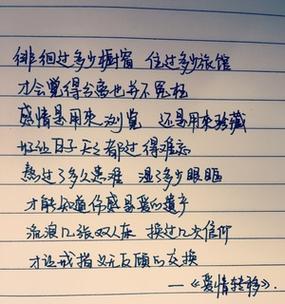 徘徊过多少橱窗 住过多少旅馆
才会觉得分离也并不冤枉
感情是用来浏览 还是用来珍藏
好让日子天天都过得难忘
熬过了多久患难 湿了多少眼眶
才能知道伤感是爱的遗产
流浪几张双人床 换过几次信仰
才让戒指义无反顾的交换
—《爱情转移》.